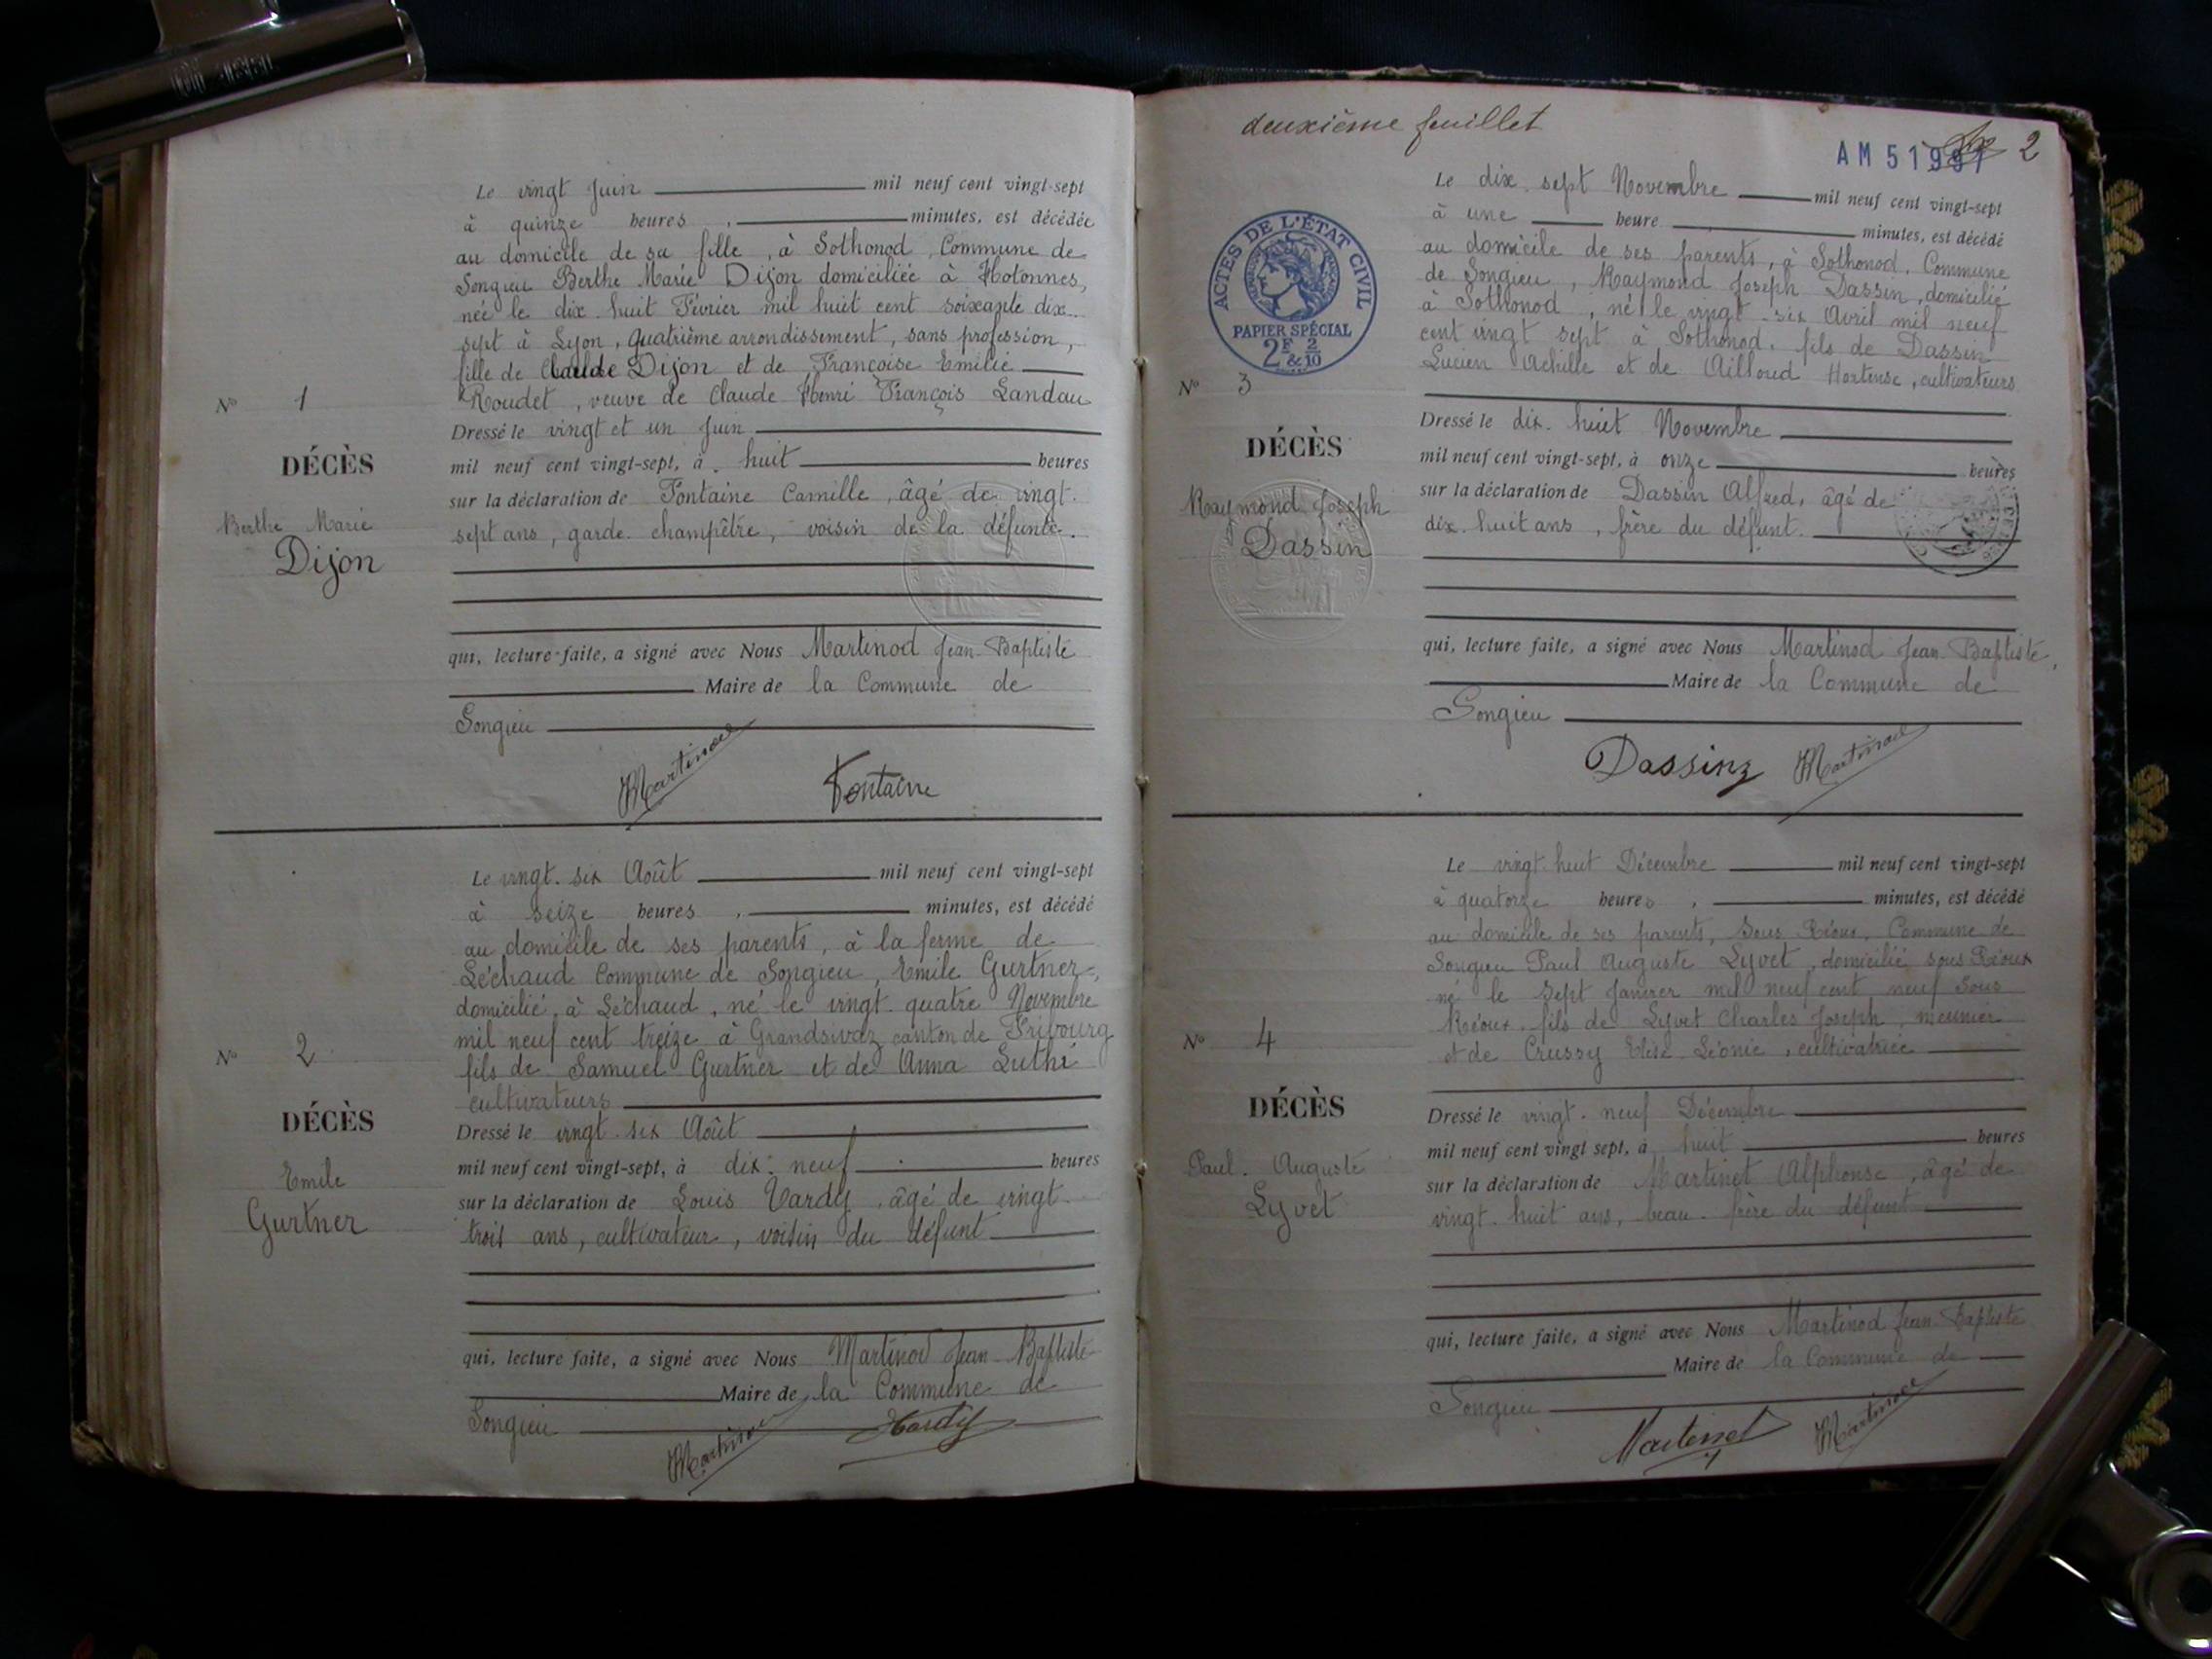 Le vingt Juin mil neuf cent vingt-sept
à quinze heures, minutes, est décédée
au domicile de sa fille, à Sothonod, Commune de
Songieu Berthe Marie Dijon domiciliée à Hotonnes,
née le dix huit Février mil huit cent soixante dix-
sept à Lyon, quatrième arrondissement, sans profession,
fille de Claude Dijon et de Françoise Emilie
Roudet, veuve de Claude Henri François Landau
Nº 1
Dressé le vingt et un Juin
DÉCÈS
mil neuf cent vingt-sept, à huit heures
sur la déclaration de Fontaine Camille, âgé de vingt-
Berthe Marie
Dijon
sept ans, garde-champêtre, voisin de la défunte.
qui, lecture faite, a signé avec Nous Martinod Jean-Baptiste
Maire de la Commune de
Songieu
Martinod Fontaine
Le vingt-six Août mil neuf cent vingt-sept
à seize heures, minutes, est décédé
au domicile de ses parents, à la ferme de
Léchaud Commune de Songieu, Emile Gurtner,
domicilié à Léchaud, né le vingt-quatre Novembre
mil neuf cent treize à Grandsivaz canton de Fribourg
fils de Samuel Gurtner et de Anna Luthi
cultivateurs
Nº 2
Dressé le vingt-six Août
DÉCÈS
mil neuf cent vingt-sept, à dix-neuf heures
Emile
Gurtner
sur la déclaration de Louis Tardy, âgé de vingt-
trois ans, cultivateur, voisin du défunt
qui, lecture faite, a signé avec Nous Martinod Jean-Baptiste
Maire de la Commune de
Songieu
Martinod Tardy
deuxième feuillet
AM 51991 2
ACTES DE L'ÉTAT CIVIL
PAPIER SPÉCIAL
2F & 2/10
Le dix-sept Novembre mil neuf cent vingt-sept
à une heure minutes, est décédé
au domicile de ses parents, à Sothonod, Commune
de Songieu, Raymond Joseph Dassin, domicilié
à Sothonod, né le vingt-six Avril mil neuf
cent vingt sept à Sothonod, fils de Dassin
Lucien Achille et de Ailloud Hortense, cultivateurs
Nº 3
Dressé le dix-huit Novembre
DÉCÈS
mil neuf cent vingt-sept, à onze heures
Raymond Joseph
Dassin
sur la déclaration de Dassin Alfred, âgé de
dix-huit ans, frère du défunt.
qui, lecture faite, a signé avec Nous Martinod Jean-Baptiste,
Maire de la Commune de
Songieu
Dassin Martinod
Le vingt-huit Décembre mil neuf cent vingt-sept
à quatorze heures, minutes, est décédé
au domicile de ses parents, Sous Réoux, Commune de
Songieu Paul Auguste Lyvet, domicilié sous Réoux
né le sept Janvier mil neuf cent neuf Sous
Réoux, fils de Lyvet Charles Joseph, meunier
et de Crussy Elise Léonie, cultivatrice
Nº 4
DÉCÈS
Dressé le vingt-neuf Décembre
mil neuf cent vingt sept, à huit heures
Paul-Auguste
Lyvet
sur la déclaration de Martinet Alphonse, âgé de
vingt-huit ans, beau-frère du défunt
qui, lecture faite, a signé avec Nous Martinod Jean-Baptiste
Maire de la Commune de
Songieu
Martinet Martinod